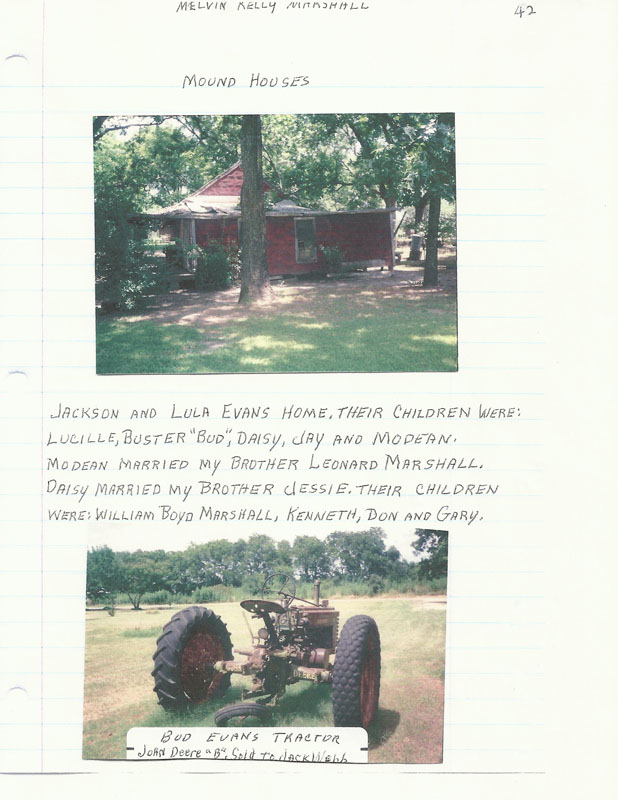 MELVIN KELLY MARSHALL
42
MOUND HOUSES
JACKSON AND LULA EVANS HOME. THEIR CHILDREN WERE:
LUCILLE, BUSTER "BUD", DAISY, JAY AND MODEAN.
MODEAN MARRIED MY BROTHER LEONARD MARSHALL.
DAISY MARRIED MY BROTHER JESSIE. THEIR CHILDREN
WERE: WILLIAM BOYD MARSHALL, KENNETH, DON AND GARY.
DEERE
BUD EVANS TRACTOR
JOHN Deere "B", Sold To JACK Webb